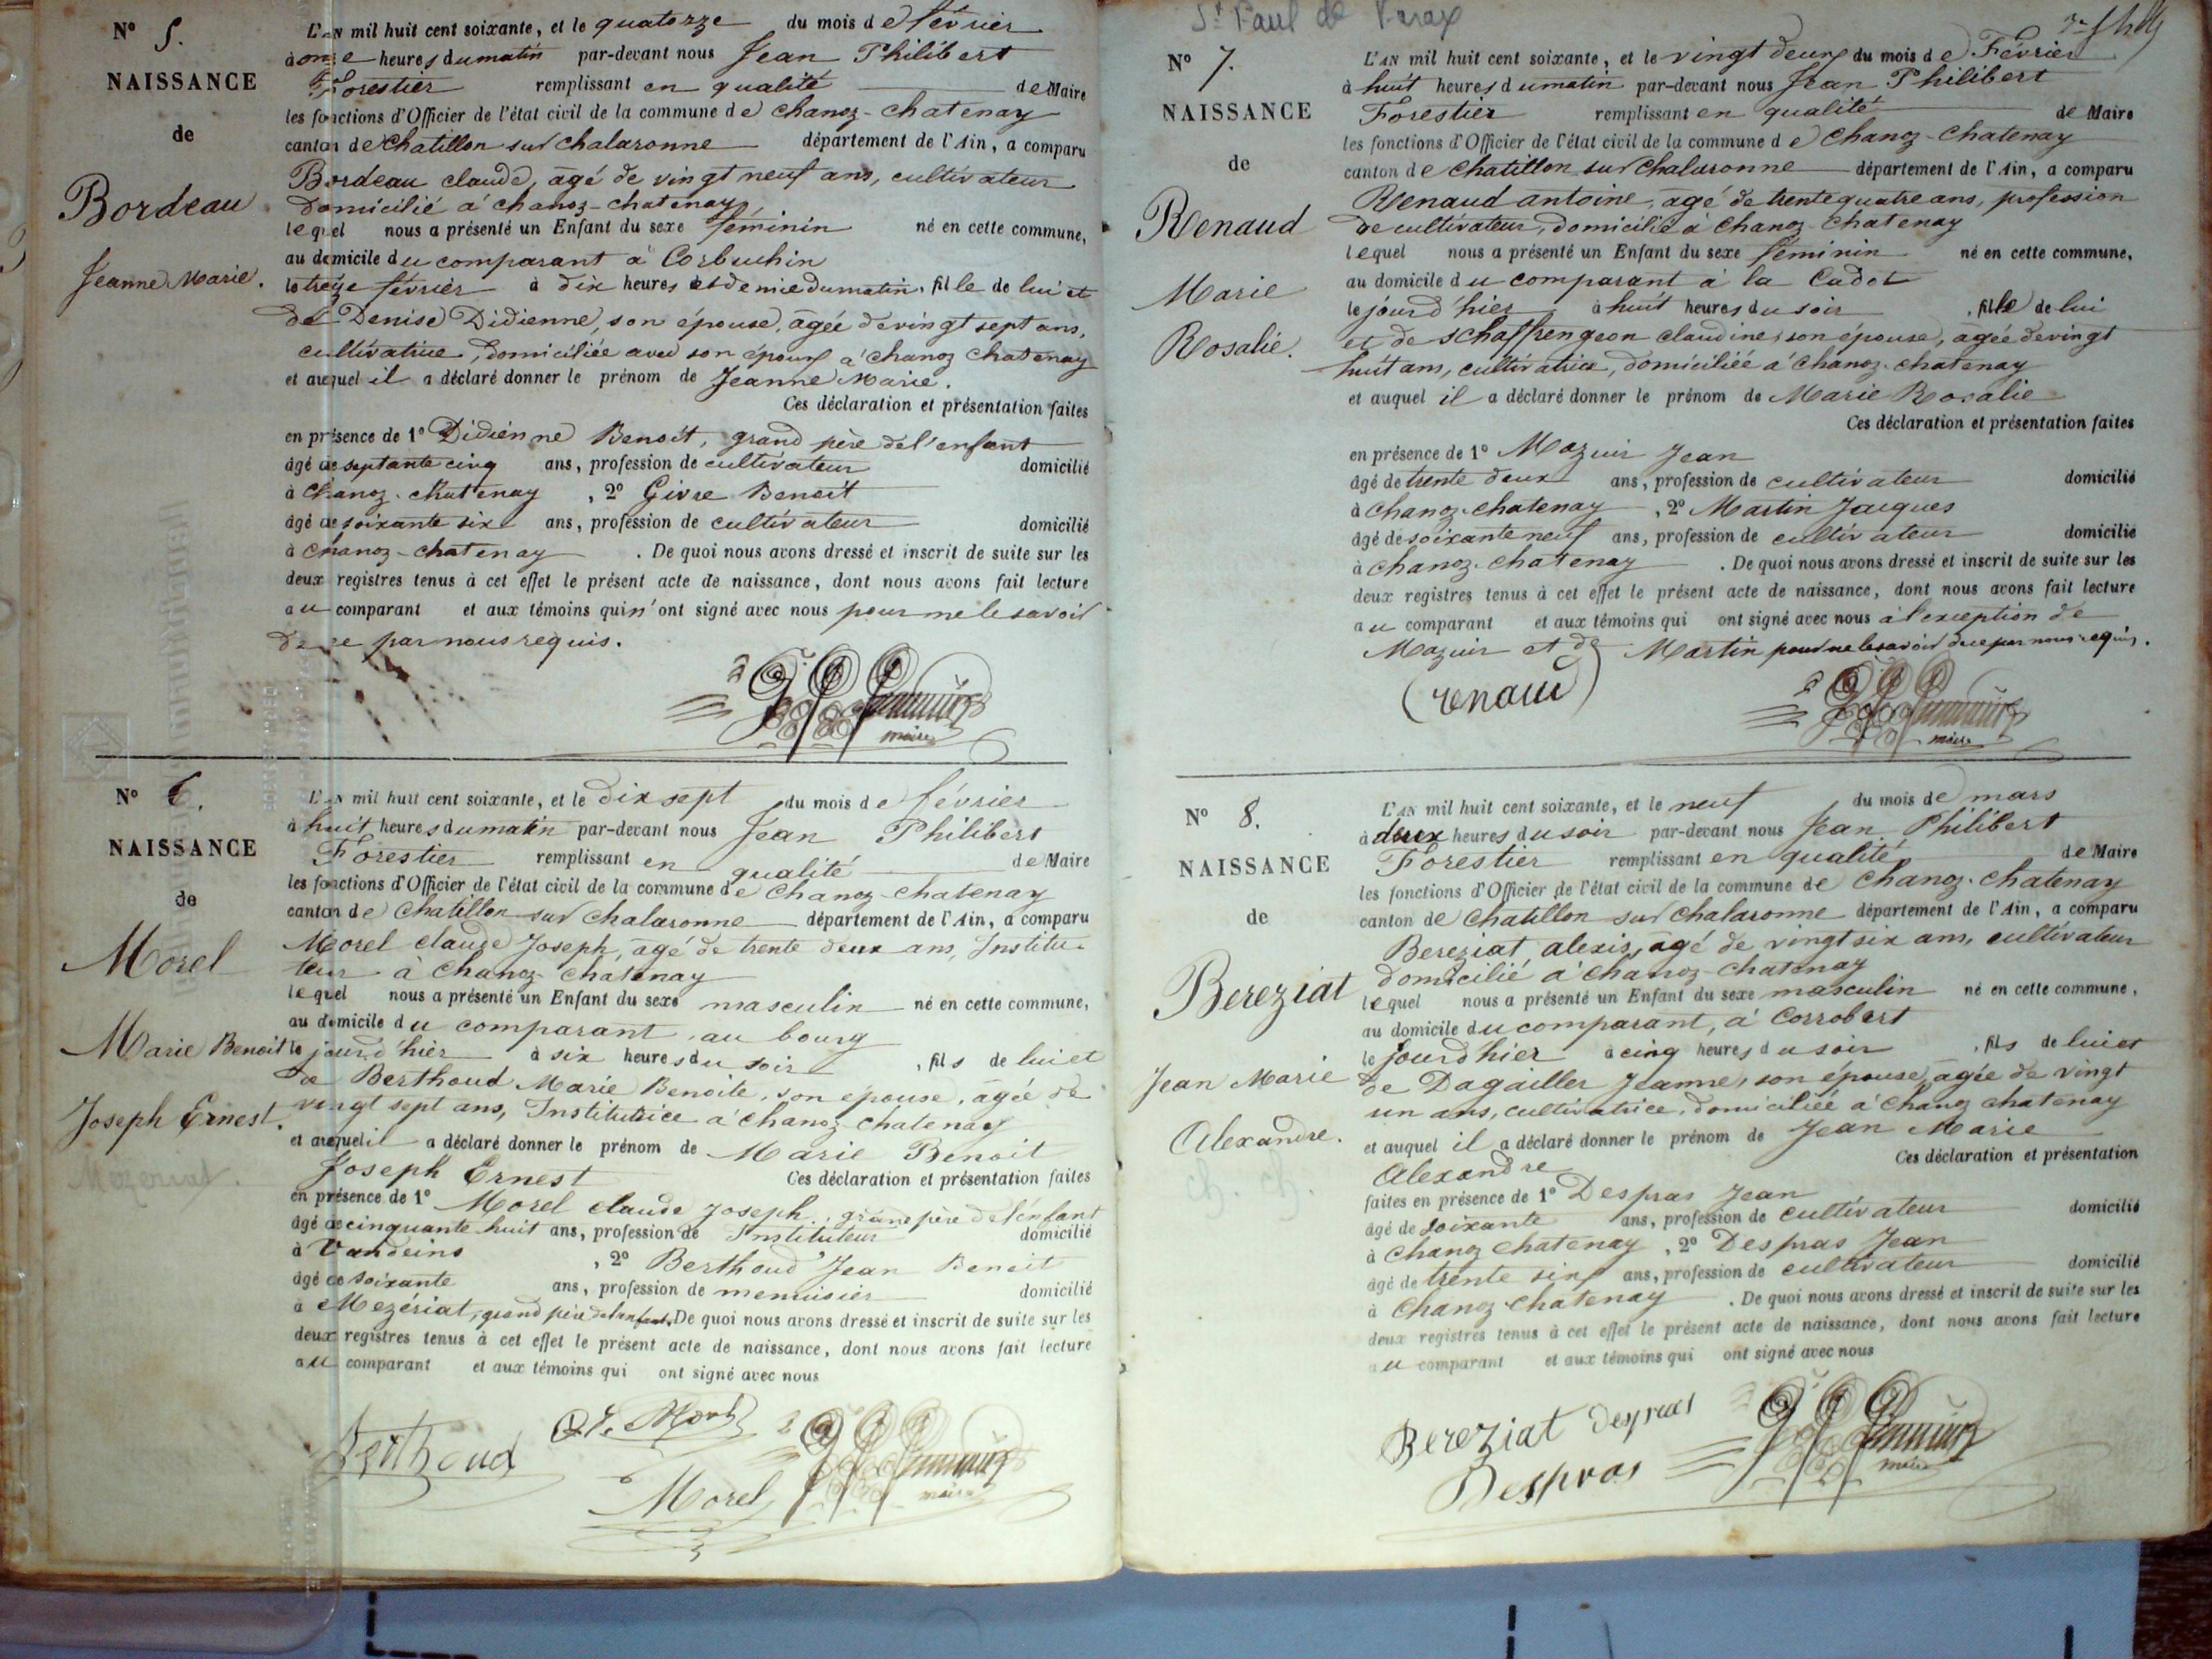 N° 5.
NAISSANCE
de
Bordeau
Jeanne Marie.
L'AN mil huit cent soixante, et le quatorze du mois de février
à onze heures du matin par-devant nous Jean Philibert
Forestier remplissant en qualité de Maire
les fonctions d'Officier de l'état civil de la commune de Chanoz-Chatenay
canton de Chatillon sur Chalaronne département de l'Ain, a comparu
Bordeau claude, agé de vingt neuf ans, cultivateur
domicilié à chanoz-chatenay,
lequel nous a présenté un Enfant du sexe féminin né en cette commune,
au domicile du comparant à Corbuchin
le treize février à dix heures et demie du matin, fille de lui et
de Denise Didienne, son épouse, âgée de vingt sept ans,
cultivatrice, domiciliée avec son époux à chanoz chatenay
et auquel il a déclaré donner le prénom de Jeanne Marie.
Ces déclaration et présentation faites
en présence de 1° Didienne Benoit, grand père de l'enfant
âgé de septante cinq ans, profession de cultivateur domicilié
à Chanoz-chatenay, 2° Givre Benoit
âgé de soixante six ans, profession de cultivateur domicilié
à chanoz-chatenay. De quoi nous avons dressé et inscrit de suite sur les
deux registres tenus à cet effet le présent acte de naissance, dont nous avons fait lecture
au comparant et aux témoins qui n'ont signé avec nous pour ne le savoir
de ce par nous requis.
maire
N° 6.
NAISSANCE
de
Morel
Marie Benoit
Joseph Ernest.
Mezeriat.
L'AN mil huit cent soixante, et le dix sept du mois de février
à huit heures du matin par-devant nous Jean Philibert
Forestier remplissant en qualité de Maire
les fonctions d'Officier de l'état civil de la commune de Chanoz-chatenay
canton de Chatillon sur Chalaronne département de l'Ain, a comparu
Morel claude Joseph, âgé de trente deux ans, Institu-
teur à Chanoz-Chatenay
lequel nous a présenté un Enfant du sexe masculin né en cette commune,
au domicile du comparant, au bourg
le jourd'hier à six heures du soir, fils de lui et
de Berthoud Marie Benoite, son épouse, âgée de
vingt sept ans, Institutrice à chanoz chatenay
et auquel il a déclaré donner le prénom de Marie Benoit
Joseph Ernest Ces déclaration et présentation faites
en présence de 1° Morel claude Joseph, grand père de l'enfant
âgé de cinquante huit ans, profession de Instituteur domicilié
à Vandeins, 2° Berthoud Jean Benoit
âgé de soixante ans, profession de menuisier domicilié
à Mezériat, grand père de l'enfant. De quoi nous avons dressé et inscrit de suite sur les
deux registres tenus à cet effet le présent acte de naissance, dont nous avons fait lecture
au comparant et aux témoins qui ont signé avec nous
Berthoud
Morel
maire
St Paul de Varax
N° 7.
NAISSANCE
de
Renaud
Marie
Rosalie.
L'AN mil huit cent soixante, et le vingt deux du mois de Février
à huit heures du matin par-devant nous Jean Philibert
Forestier remplissant en qualité de Maire
les fonctions d'Officier de l'état civil de la commune de Chanoz-Chatenay
canton de Chatillon sur Chalaronne département de l'Ain, a comparu
Renaud antoine, agé de trente quatre ans, profession
de cultivateur, domicilié à Chanoz-Chatenay
lequel nous a présenté un Enfant du sexe féminin né en cette commune,
au domicile du comparant à la Cadot
le jourd'hier à huit heures du soir, fille de lui
et de Schaffrengeon claudine, son épouse, agée de vingt
huit ans, cultivatrice, domiciliée à chanoz-chatenay
et auquel il a déclaré donner le prénom de Marie Rosalie
Ces déclaration et présentation faites
en présence de 1° Mazuir Jean
âgé de trente deux ans, profession de cultivateur domicilié
à Chanoz-chatenay, 2° Martin Jacques
âgé de soixante neuf ans, profession de cultivateur domicilié
à chanoz-chatenay. De quoi nous avons dressé et inscrit de suite sur les
deux registres tenus à cet effet le présent acte de naissance, dont nous avons fait lecture
au comparant et aux témoins qui ont signé avec nous à l'exception de
Mazuir et de Martin pour ne le savoir de ce par nous requis.
renaud
maire
N° 8.
NAISSANCE
de
Bereziat
Jean Marie
Alexandre.
ch. ch.
L'AN mil huit cent soixante, et le neuf du mois de mars
à deux heures du soir par-devant nous Jean Philibert
Forestier remplissant en qualité de Maire
les fonctions d'Officier de l'état civil de la commune de Chanoz-Chatenay
canton de Chatillon sur Chalaronne département de l'Ain, a comparu
Bereziat alexis, âgé de vingt six ans, cultivateur
domicilié à Chanoz-chatenay
lequel nous a présenté un Enfant du sexe masculin né en cette commune,
au domicile du comparant, à Corrobert
le jourd'hier à cinq heures du soir, fils de lui et
de Dagailler Jeanne, son épouse, agée de vingt
un ans, cultivatrice, domiciliée à chanoz chatenay
et auquel il a déclaré donner le prénom de Jean Marie
Alexandre Ces déclaration et présentation
faites en présence de 1° Despras Jean
âgé de soixante ans, profession de cultivateur domicilié
à Chanoz chatenay, 2° Despras Jean
âgé de trente six ans, profession de cultivateur domicilié
à Chanoz-chatenay. De quoi nous avons dressé et inscrit de suite sur les
deux registres tenus à cet effet le présent acte de naissance, dont nous avons fait lecture
au comparant et aux témoins qui ont signé avec nous
Bereziat despras
Despras
maire